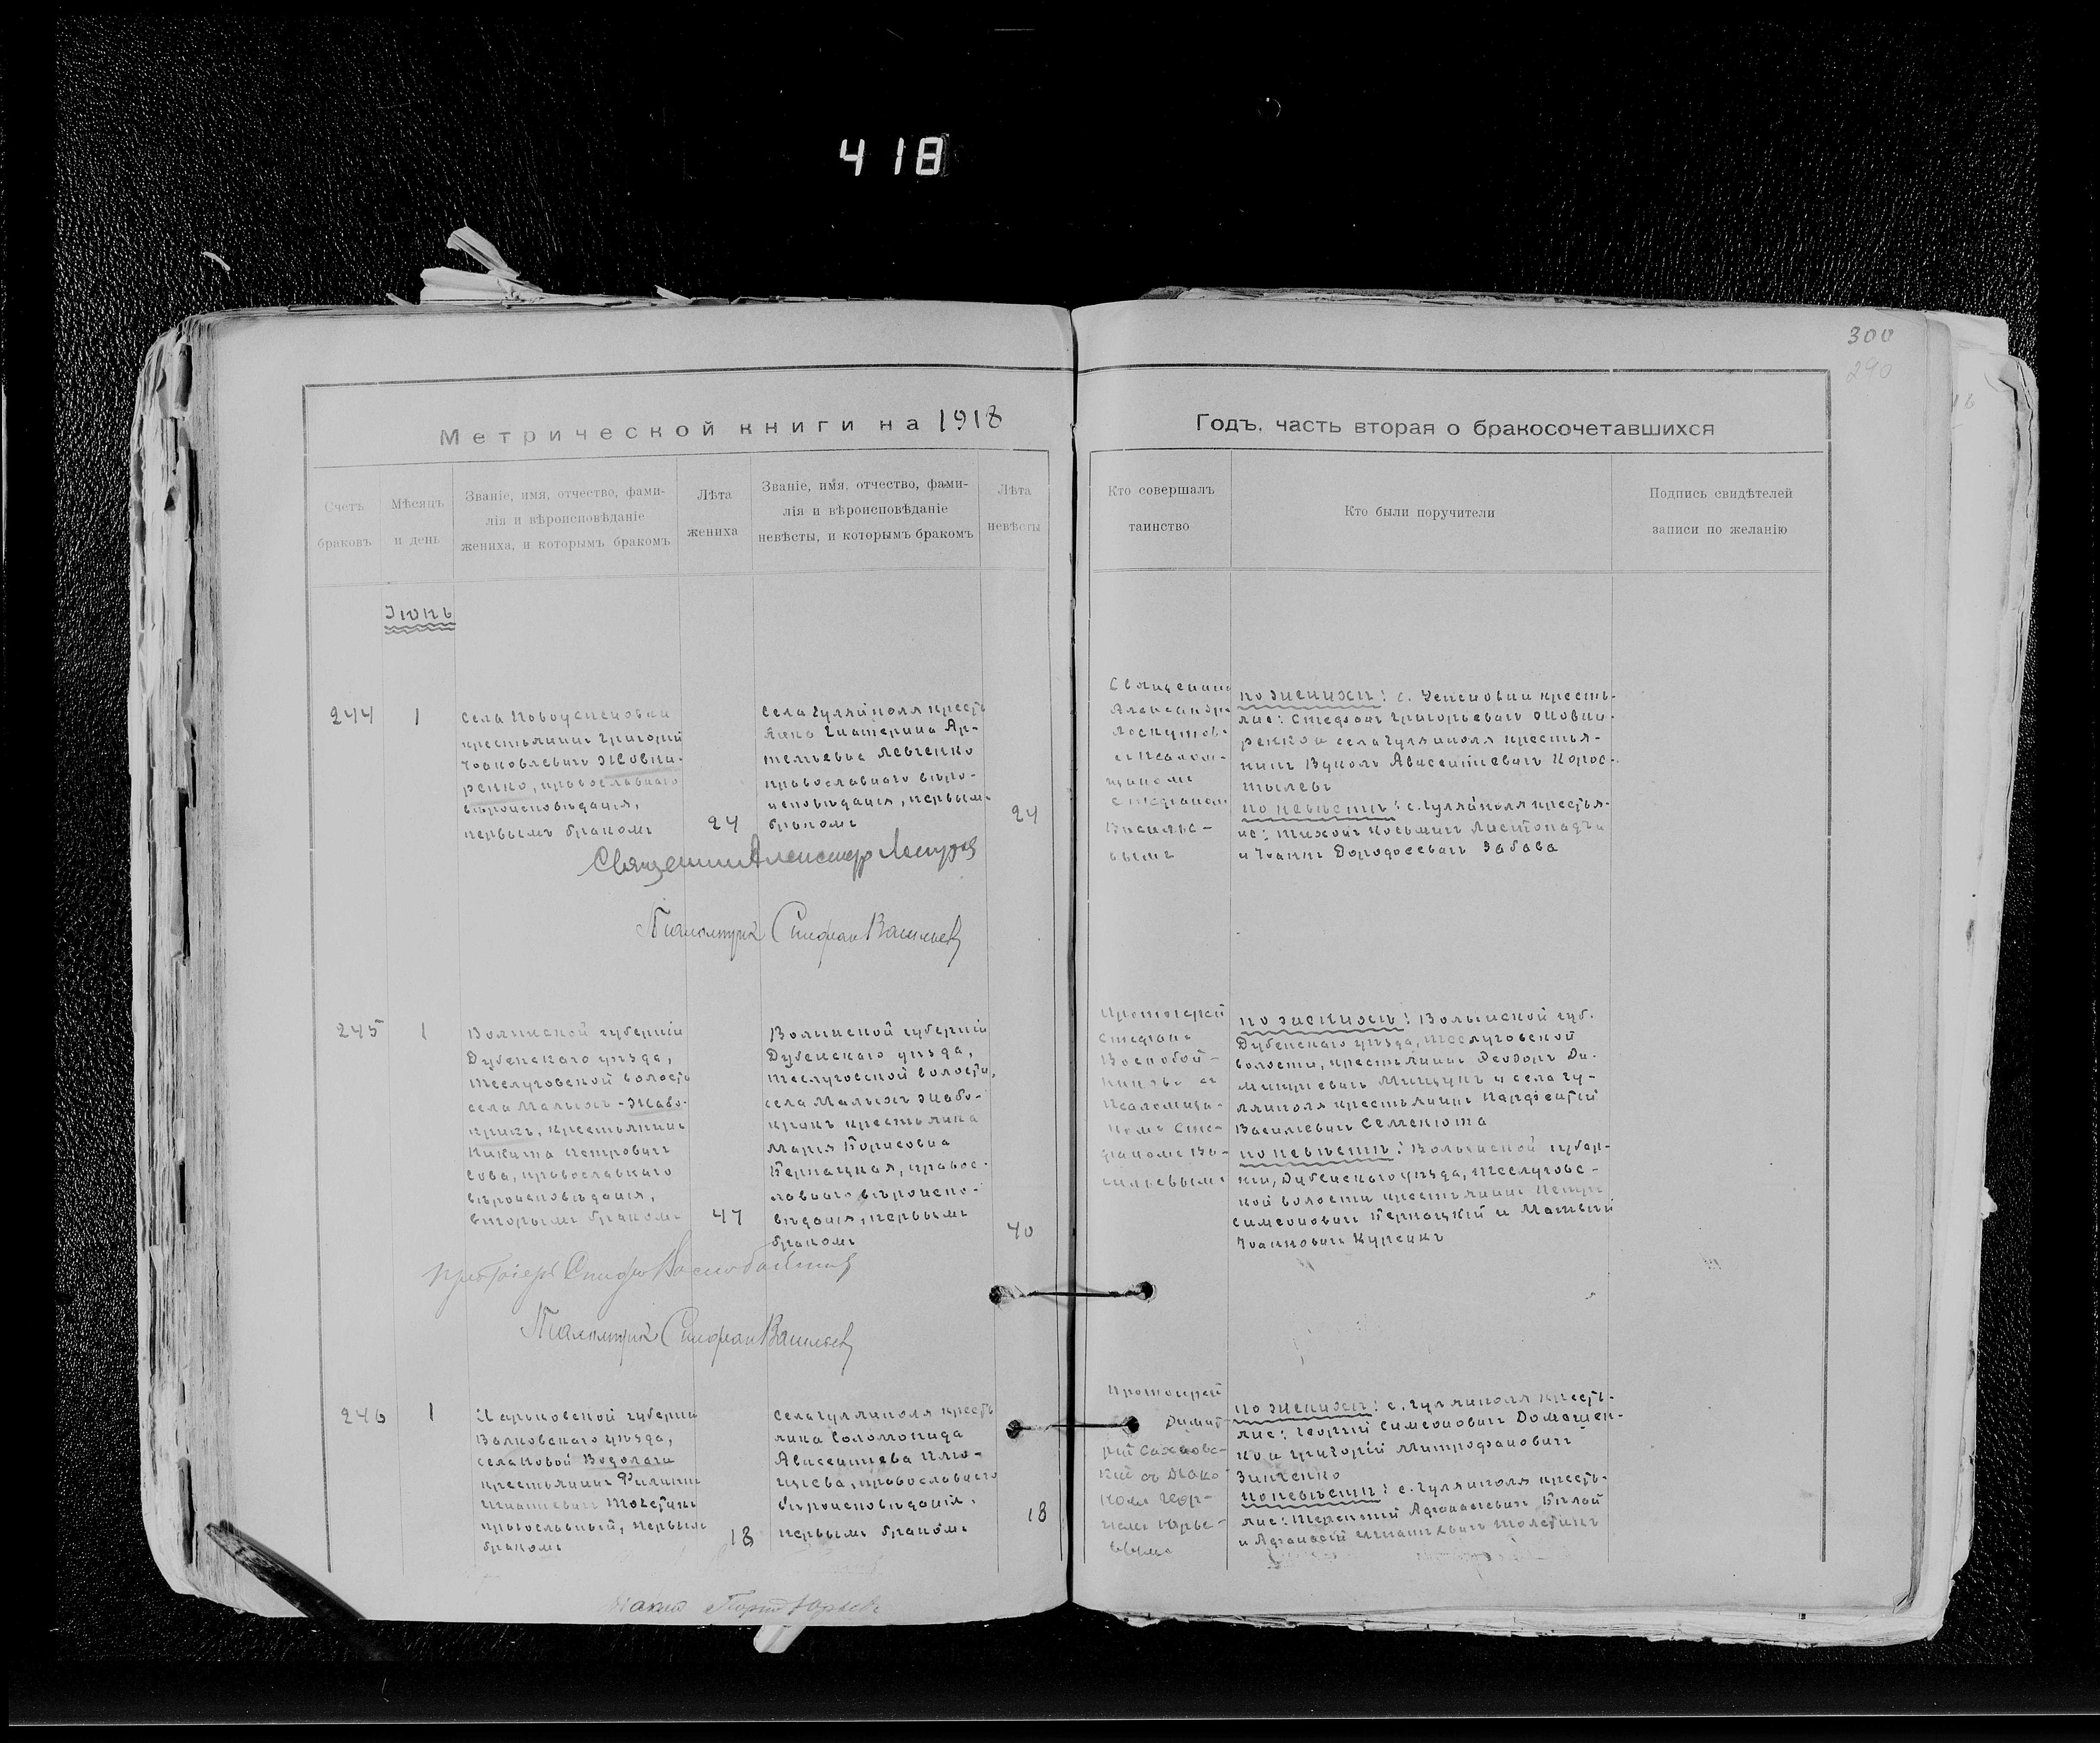 418
300
290
Метрической книги на 1918
Годъ, часть вторая о бракосочетавшихся
Счетъ браковъ
Мѣсяцъ и день
Званіе, имя, отчество, фами-
лія и вѣроисповѣданіе
жениха, и которымъ бракомъ
Лѣта жениха
Званіе, имя, отчество, фами-
лія и вѣроисповѣданіе
невѣсты, и которымъ бракомъ
Лѣта невѣсты
Кто совершалъ
таинство
Кто были поручители
Подпись свидѣтелей
записи по желанію
Іюнь
244
1
Села Новоуспеновки
крестьянинъ Григорій
Іоаковлевичъ Жовни-
ренко, православнаго
вѣроисповѣданія,
первымъ бракомъ
24
Села Гуляйполя кресть
янка Екатерина Ар-
темьевна Левченко
православнаго вѣро-
исповѣданія, первымъ
бракомъ
24
Священникъ
Александръ
Лоскутовъ
съ Псалом-
щикомъ
Стефаномъ
Василье-
вымъ
по женихѣ: с. Успеновки кресть-
яне: Стефанъ Григорьевичъ Жовни-
ренко и села Гуляйполя крестья-
нинъ Вуколъ Авксентіевичъ Корос-
тылевъ
по невѣстѣ: с. Гуляйполя крестья-
не: Тихонъ Косьминъ Листопадъ и
и Іоаннъ Дорофеевичъ Забава
Священникъ Александръ Лоскутов
Псаломщикъ Стефан Васильев
245
1
Волынской губерніи
Дубенскаго уѣзда,
Теслуговской волости
села Малыхъ-Жабо-
крикъ, крестьянинъ
Никита Петровичъ
Сова, православнаго
вѣроисповѣданія,
вторымъ бракомъ
47
Волынской губерніи
Дубенскаго уѣзда,
Теслуговской волости,
села Малыхъ Жабо-
крикъ крестьянка
Марія Борисовна
Бернацкая, правос-
лавнаго вѣроиспо-
вѣданія, первымъ
бракомъ
40
Протоіерей
Стефанъ
Воскобой-
никовъ съ
Псаломщи-
комъ Сте-
фаномъ Ва-
сильевымъ
по женихѣ: Волынской губ.
Дубенскаго уѣзда, Теслуговской
волости, крестьянинъ Ѳеодоръ Ди-
митріевичъ Мищукъ и села Гу-
ляйполя крестьянинъ Парфентій
Васильевичъ Семенюта
по невѣстѣ: Волынской губер-
ніи, Дубенскаго уѣзда, Теслуговс-
кой волости крестьянинъ Петръ
Симеоновичъ Бернацкій и Матвѣй
Іоанновичъ Куренъ
Протоіерей Стефан Воскобойников
Псаломщикъ Стефан Васильев
246
1
Харьковской губерніи
Валковскаго уѣзда,
села Новой Водолаги
крестьянинъ Филиппъ
Игнатіевичъ Толстикъ
православный, первымъ
бракомъ
18
Села Гуляйполя кресть
янка Соломонида
Авксентіева
православнаго
вѣроисповѣданія,
первымъ бракомъ
18
Протоіерей
Димит-
рій Сахновс-
кій съ Діако-
номъ Геор-
гіемъ Юрье-
вымъ
по женихѣ: с. Гуляйполя кресть-
яне: Георгій Симеоновичъ Домашен-
ко и Григорій Митрофановичъ
Зинченко
по невѣстѣ: с. Гуляйполя кресть-
яне: Терентій Афанасіевичъ Бѣлай
и Афанасій Игнатіевичъ Толстикъ
Діаконъ Георгій Юрьевъ